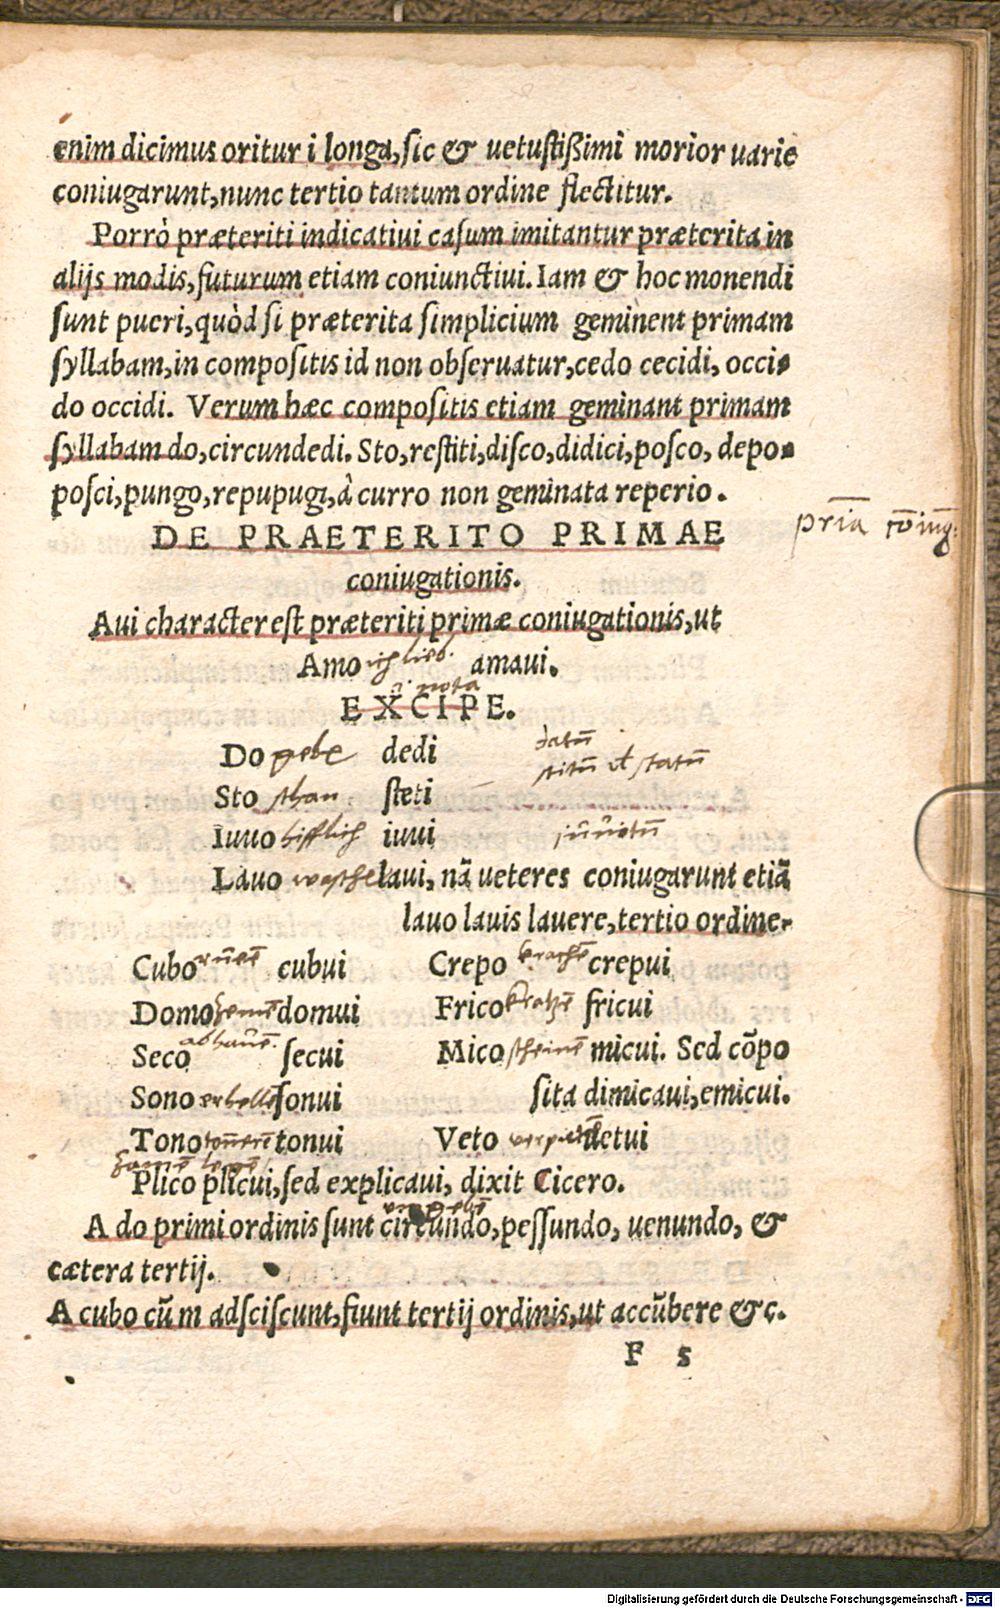 enim dicimus oritur i longa, sic & uetustißimi morior uarie
coniugarunt, nunc tertio tantum ordine flectitur.
Porrò præteriti indicatiui casum imitantur præterita in
alijs modis, futurum etiam coniunctiui. Iam & hoc monendi
sunt pueri, quòd si præterita simplicium geminent primam
syllabam, in compositis id non obseruatur, cedo cecidi, occi-
do occidi. Verum hæc compositis etiam geminant primam
syllabam do, circundedi. Sto, restiti, disco, didici, posco, depo-
posci, pungo, repupugi, à curro non geminata reperio.
DE PRAETERITO PRIMAE
pria cōiug:
coniugationis.
Aui character est præteriti primæ coniugationis, ut
Amo ich lieb. amaui.
nota
EXCIPE.
Do gebe dedi datū
Sto sthan steti stitū vl statū
Iuuo hifflich iuui
Lauo wasche laui, nã ueteres coniugarunt etiã
lauo lauis lauere, tertio ordine.
Cubo cubui Crepo krachē crepui
Domo zemē domui Frico kratzē fricui
Seco abhauē secui Mico scheinē micui. Sed cõpo
Sono sonui sita dimicaui, emicui.
Tono tonnerē tonui Veto uetui
zamē legē
Plico plicui, sed explicaui, dixit Cicero.
A do primi ordinis sunt circundo, pessundo, uenundo, &
cætera tertij.
A cubo cū m adsciscunt, fiunt tertij ordinis, ut accūbere &c.
F 5
Digitalisierung gefördert durch die Deutsche Forschungsgemeinschaft - DFG